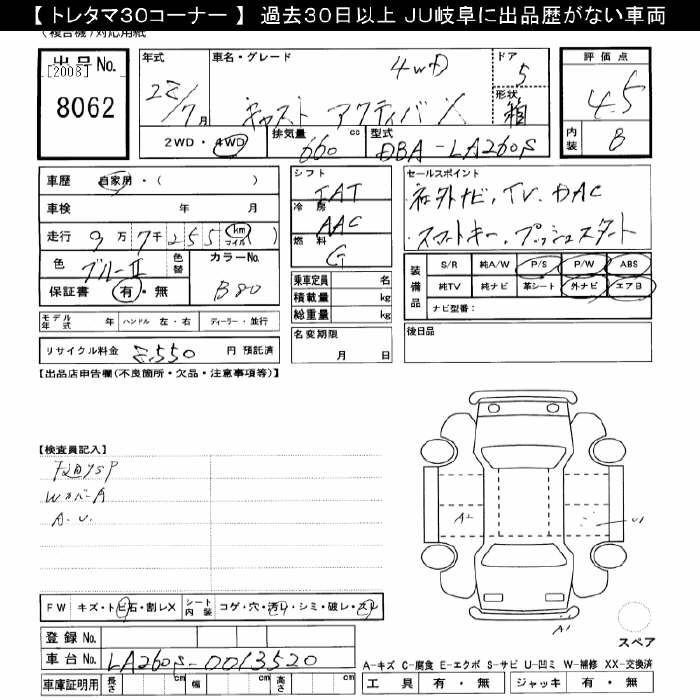 【 トレタマ30コーナー 】 過去30日以上 JU岐阜に出品歴がない車両
(複合機)対応用紙
出品No.
[2008]
8062
年式
車名・グレード
ドア
評価点
4WD
5
28/7月
キャスト アクティバX
形状
箱
4.5
2WD・4WD
排気量
660 cc
型式
DBA-LA260S
内装
8
車歴 自家用・( )
シフト
IAT
セールスポイント
社外ナビ、TV、DAC
車検 年 月
冷房
AAC
スマートキー、プッシュスタート
走行 9万7千255 (km マイル)
燃料
G
色 ブルーII 色替
カラーNo.
B80
保証書 有・無
乗車定員 名
積載量 kg
総重量 kg
装備品
S/R 純A/W P/S P/W ABS
純TV 純ナビ 革シート 外ナビ エアB
ナビ型番:
モデル年式 年 ハンドル 左・右 ディーラー・並行
名変期限
月 日
後日品
リサイクル料金 円 預託済
【出品店申告欄(不良箇所・欠品・注意事項等)】
【検査員記入】
WカバーA
A.U.
A2
U1
A1
FW キズ・トビ石・割レX
シート内装 コゲ・穴・汚レ・シミ・破レ・スレ
スペア
登録No.
車台No. LA260S-0013520
A-キズ C-腐食 E-エクボ S-サビ U-凹ミ W-補修 XX-交換済
車庫証明用 長さ cm 幅 cm 高さ cm
工具 有・無 ジャッキ 有・無